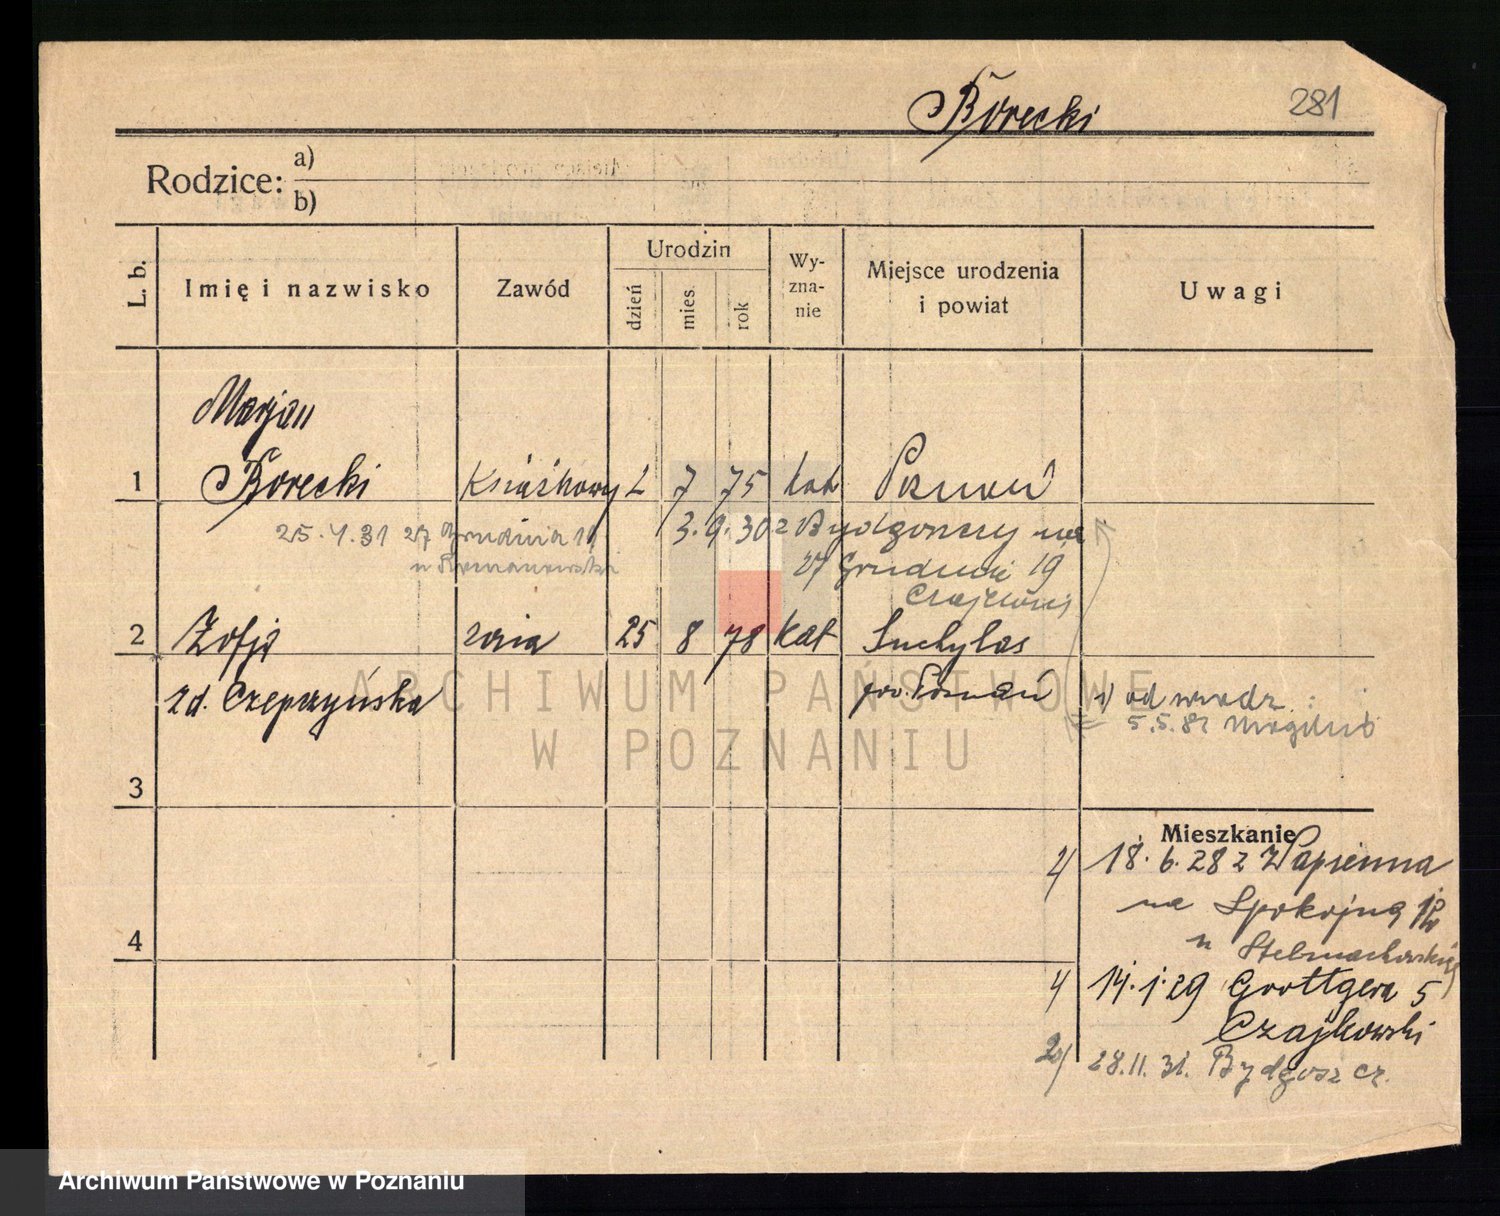 Borecki
281
Rodzice: a)
b)
L. b.
Imię i nazwisko
Zawód
Urodzin
dzień
mies.
rok
Wy-
zna-
nie
Miejsce urodzenia
i powiat
Uwagi
Marjan
1 Borecki Książkowy 2 7 75 kat Poznań
25.4.31 27 Grudnia 19
3.9.30 z Bydgoszczy na
27 Grudnia 19
2 Zofja żona 25 8 78 kat Suchylas
zd. Czepczyńska
pow. Poznań
1) od urodz.:
ARCHIWUM PAŃSTWOWE
W POZNANIU
3
Mieszkanie
2/ 18.6.28 z Wapienna
na Spokojną
u Stelmachowskiej
4
14.1.29 Grottgera 5
Czajkowski
28.11.31. Bydgoszcz.
Archiwum Państwowe w Poznaniu